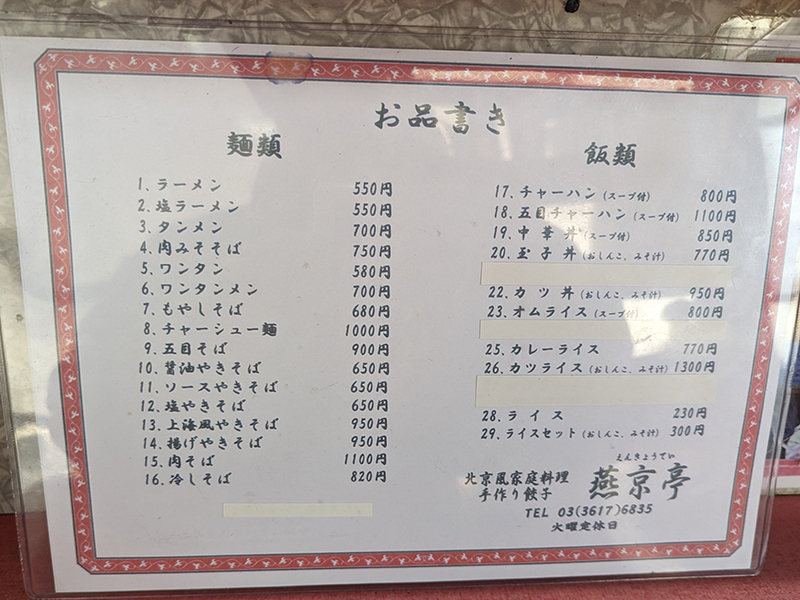 お品書き
麺類
1.ラーメン 550円
2.塩ラーメン 550円
3.タンメン 700円
4.肉みそそば 750円
5.ワンタン 580円
6.ワンタンメン 700円
7.もやしそば 680円
8.チャーシュー麺 1000円
9.五目そば 900円
10.醤油やきそば 650円
11.ソースやきそば 650円
12.塩やきそば 650円
13.上海風やきそば 950円
14.揚げやきそば 950円
15.肉そば 1100円
16.冷しそば 820円
飯類
17.チャーハン(スープ付) 800円
18.五目チャーハン(スープ付) 1100円
19.中華丼(スープ付) 850円
20.玉子丼(おしんこ、みそ汁) 770円
22.カツ丼(おしんこ、みそ汁) 950円
23.オムライス(スープ付) 800円
25.カレーライス 770円
26.カツライス(おしんこ、みそ汁) 1300円
28.ライス 230円
29.ライスセット(おしんこ、みそ汁) 300円
えんきょうてい
北京風家庭料理 燕京亭
手作り餃子
TEL 03(3617)6835
火曜定休日